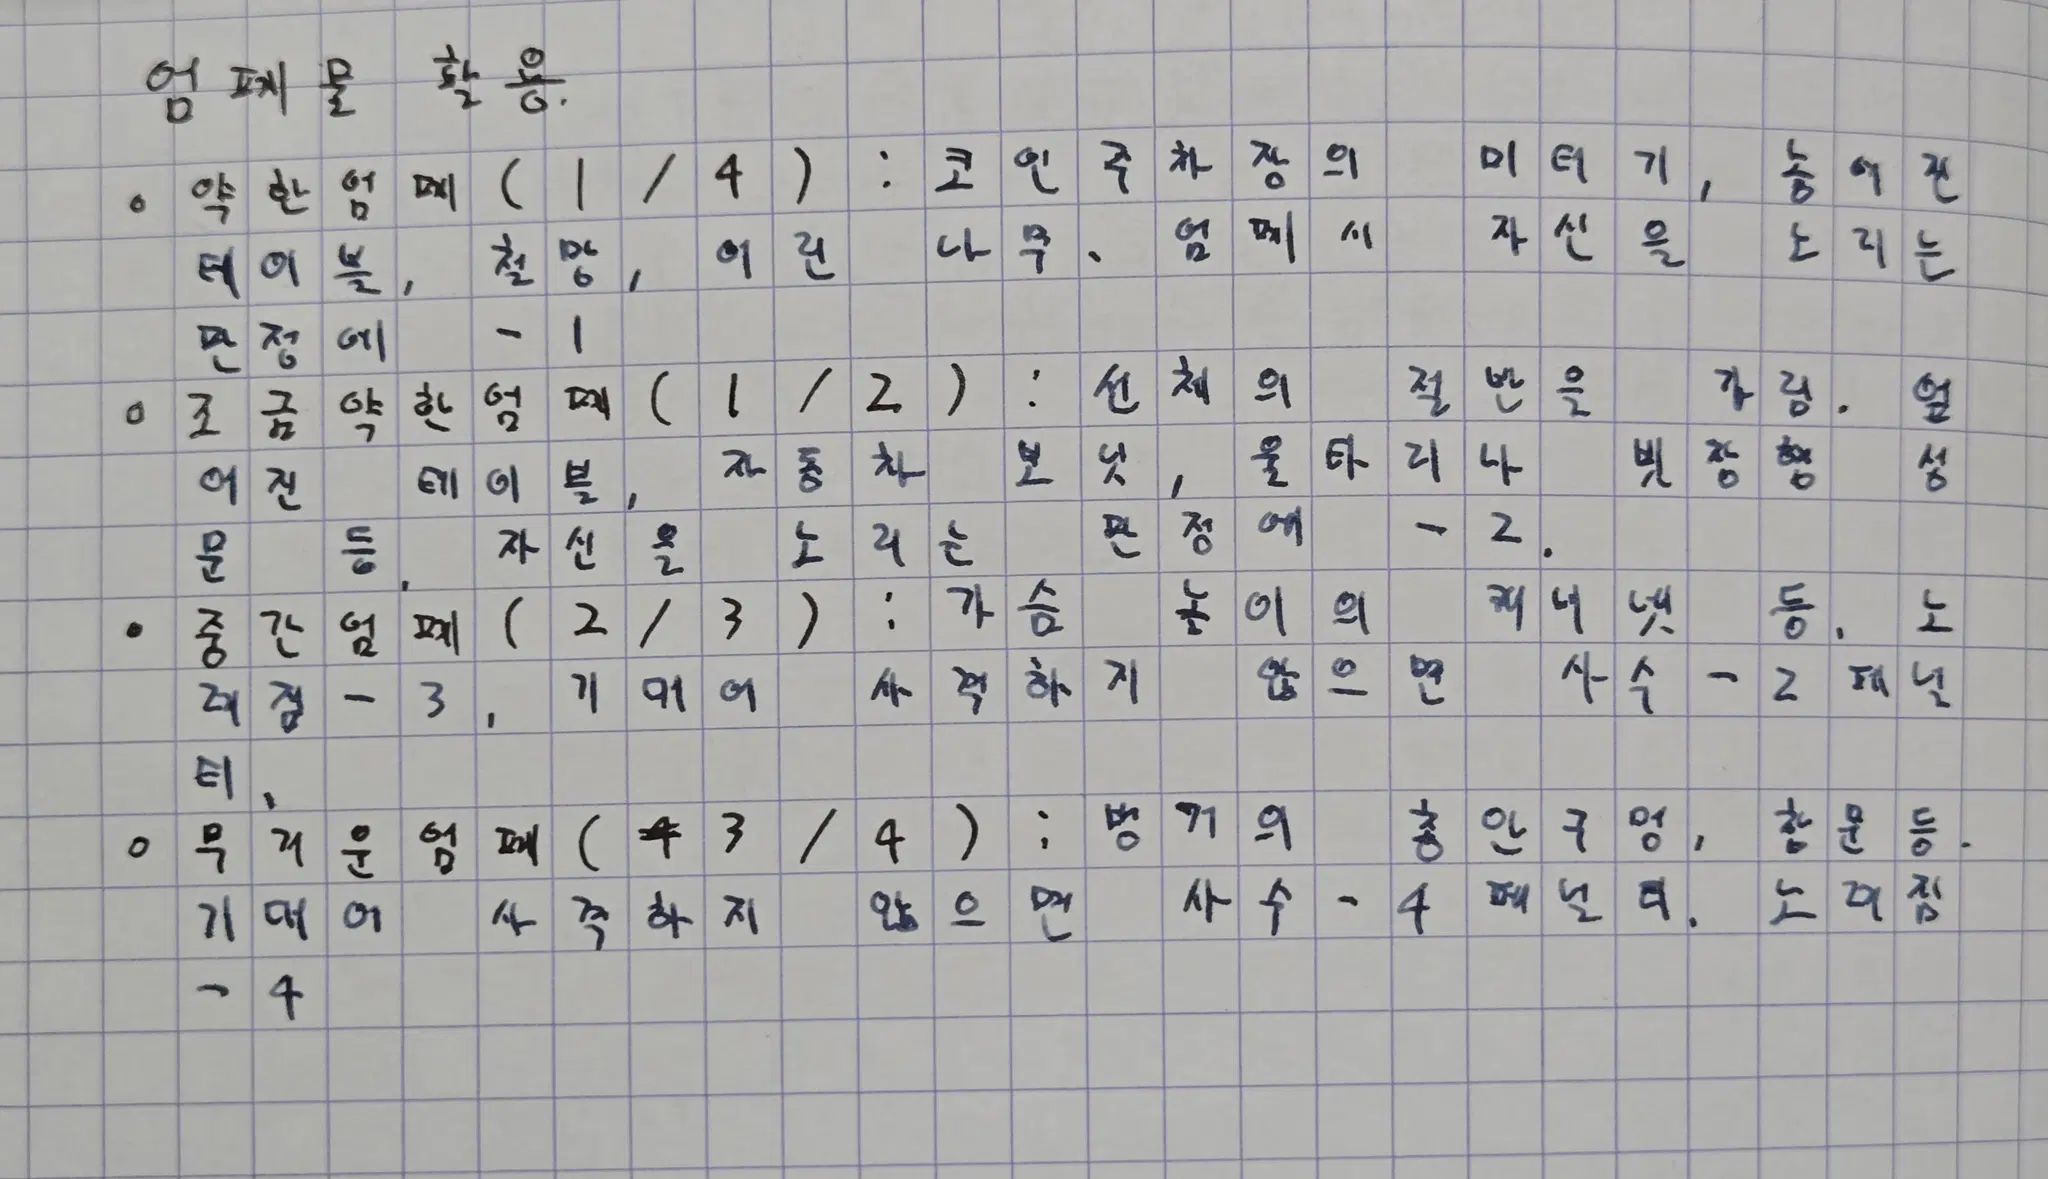 엄폐물 활용.
• 약한엄폐(1/4) : 코인주차장의 미터기, 놓여진
테이블, 철망, 어린 나무. 엄폐시 자신을 노리는
판정에 -1
• 조금약한엄폐(1/2) : 신체의 절반을 가림. 엎
어진 테이블, 자동차 보닛, 울타리나 빗장형 성
문 등. 자신을 노리는 판정에 -2.
• 중간엄폐(2/3) : 가슴 높이의 캐니넷 등. 노
려짐-3, 기대어 사격하지 않으면 사수-2페널
티.
• 무거운엄폐(3/4) : 벙커의 총안구멍, 함문등.
기대어 사격하지 않으면 사수-4페널티. 노려짐
-4